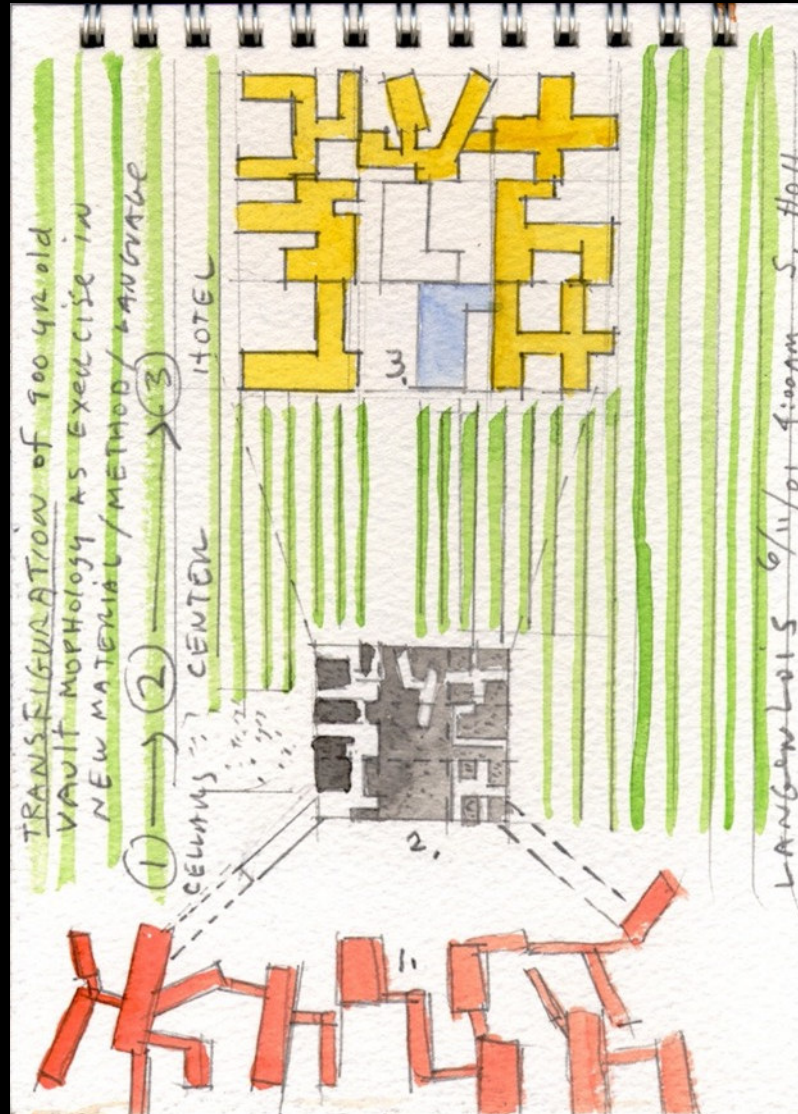 TRANSFIGURATION of 900 YR old
VAULT MOPHOLOGY AS EXERCISE IN
NEW MATERIAL / METHOD / LANGUAGE
① → ② → ③
CELLARS CENTER HOTEL
3.
2.
1.
LANGENLOIS 6/11/01 4:00AM S. Holl